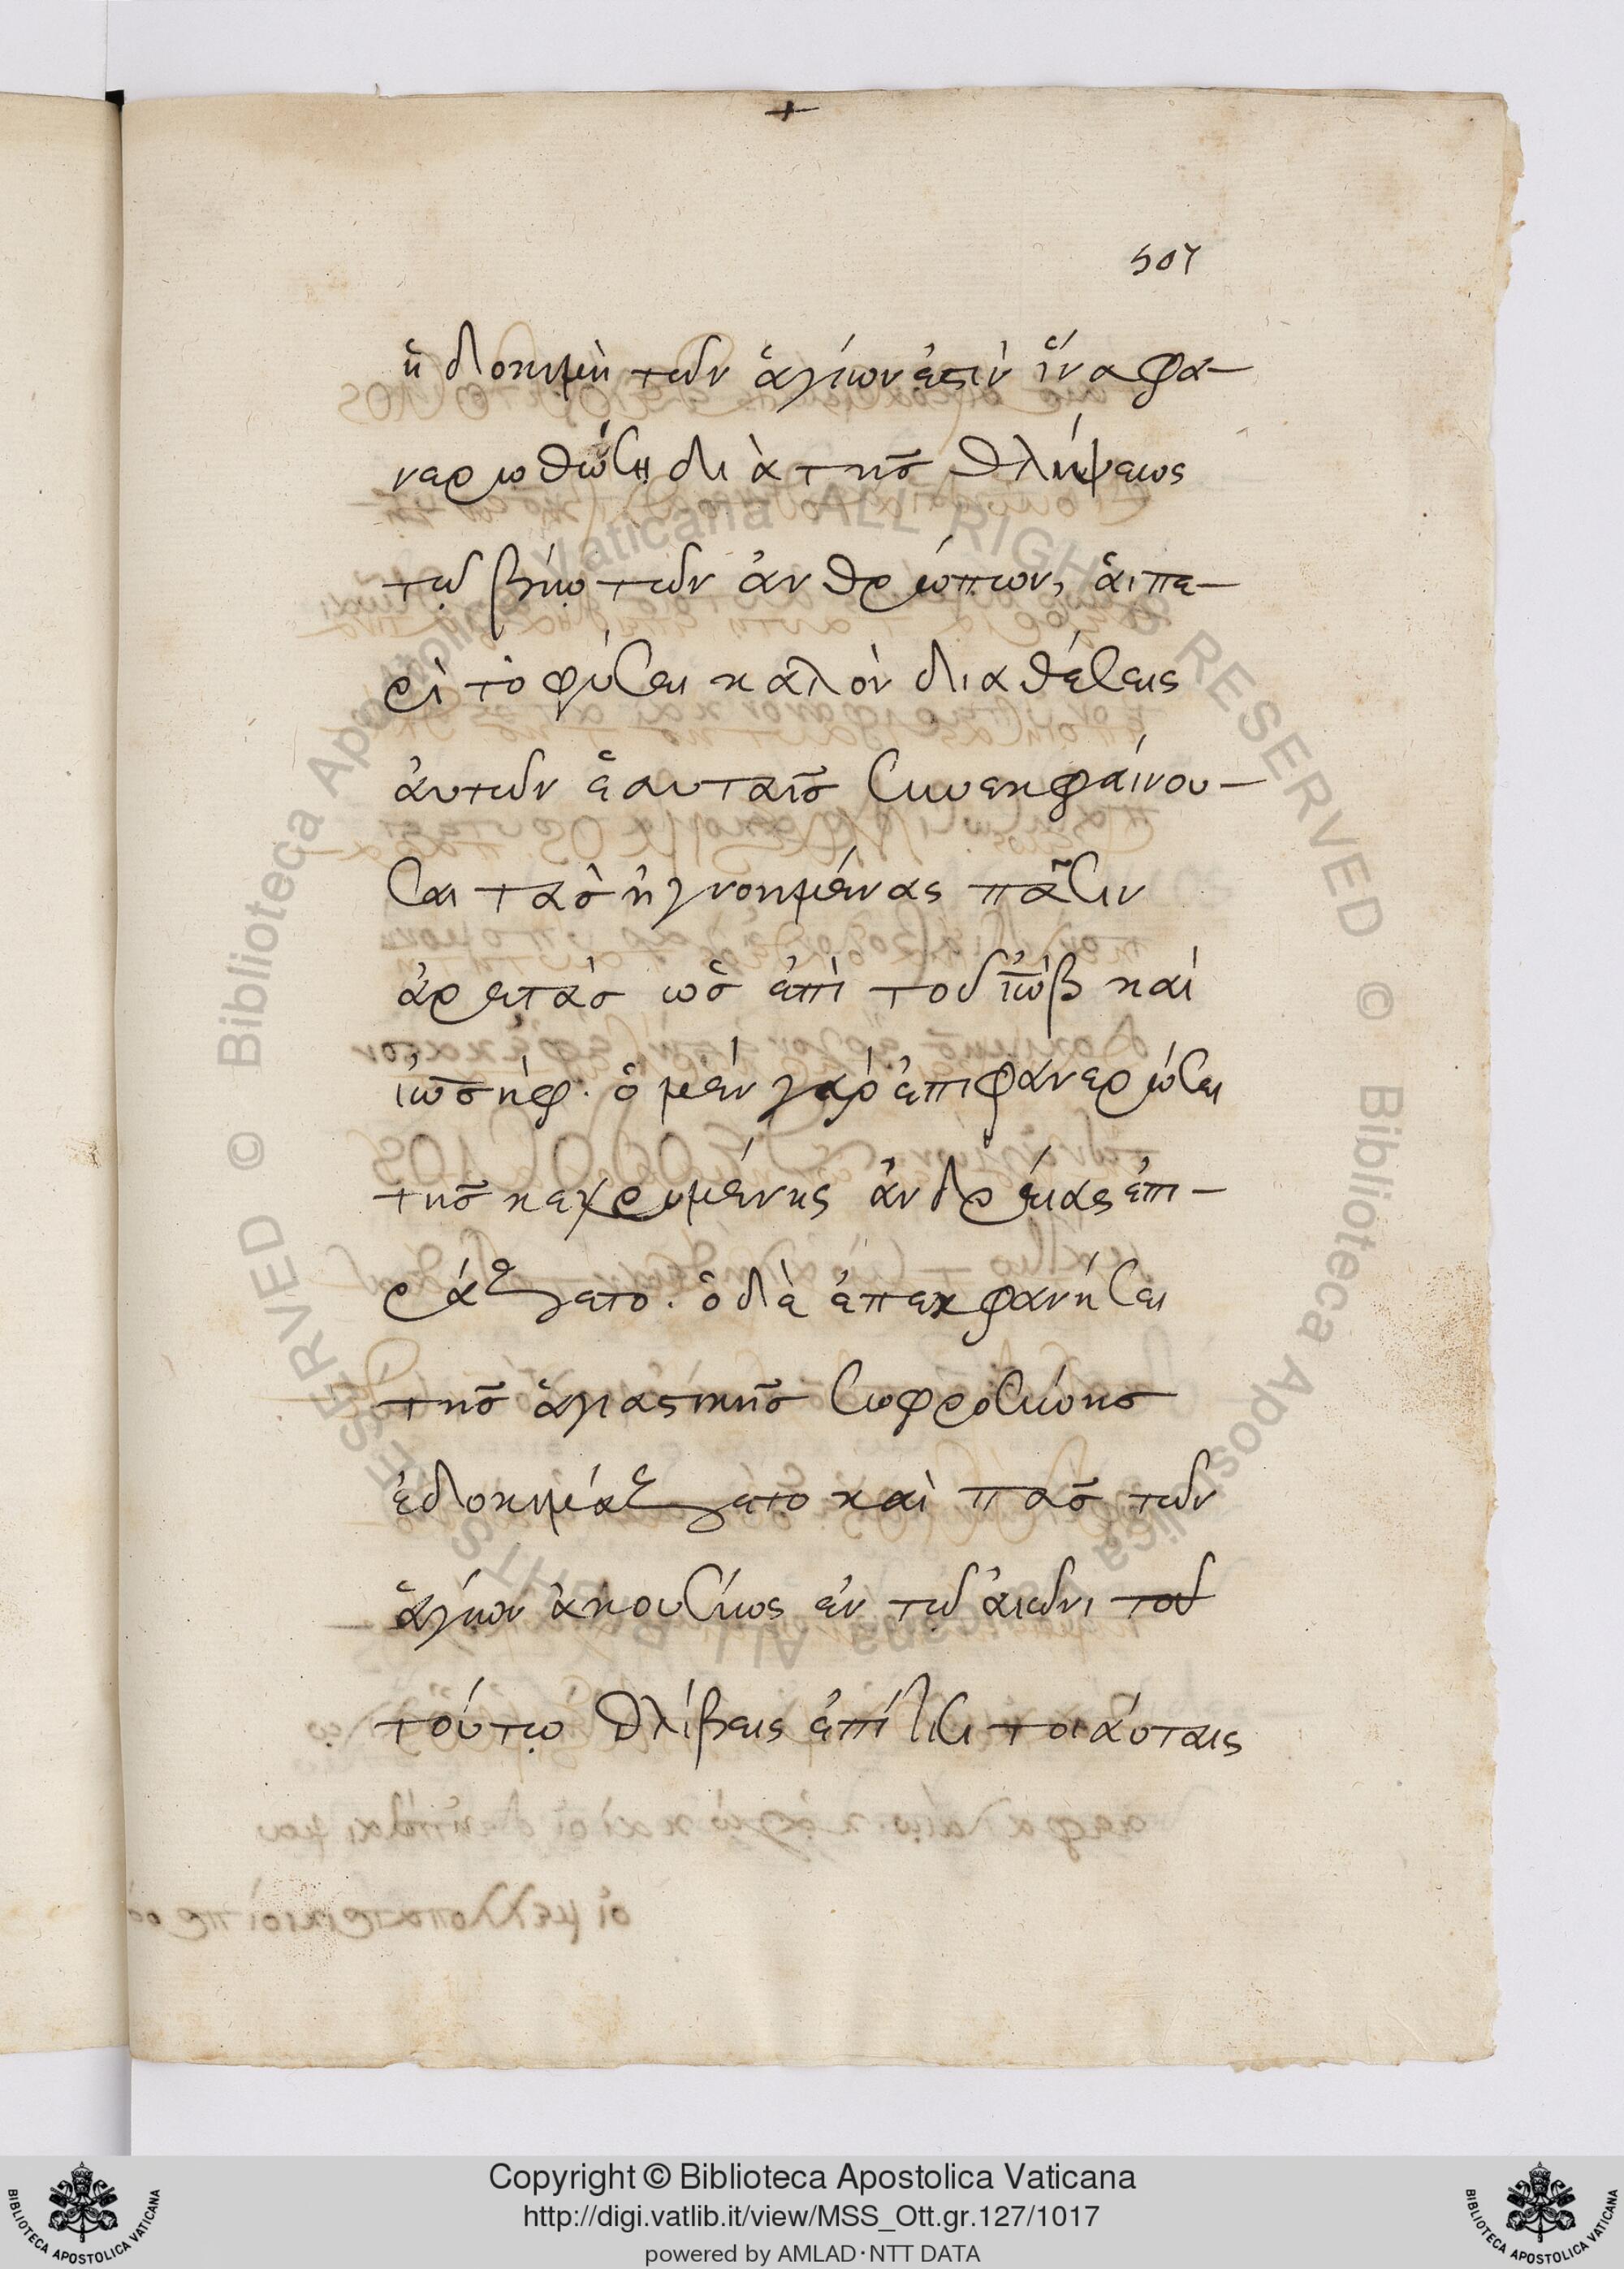 +
507
ἡ δοκιμὴ τῶν ἁγίων ἐστὶν ἵνα φα-
νερωθῶσῃ διὰ τῆς θλίψεως
τῷ βίῳ τῶν ἀνθρώπων, ἁι πε-
ρὶ τὸ φύσει καλὸν διαθέσεις
ἀυτῶν ἑαυταῖς συνεκφαίνου-
σαι τὰς ἠγνοημένας πᾶσιν
ἀρετάς ὡς ἐπὶ τοῦ ἰὼβ καὶ
ἰωσήφ. ὁ μὲν γὰρ ἐπιφανερώσει
τῆς κεκρυμένης ἀνδρείας ἐπι-
ράζετο. ὁ δὲ ἐπεκφανήσει
τῆς ἁγιαστικῆς σωφροσύνης
ἐδοκιμάζετο καὶ πᾶς τῶν
ἁγίων ἀκουσίως ἐν τῷ ἀιῶνι τοῦ
τούτῳ θλίβεις ἐπί τισι τοιάυταις
Copyright © Biblioteca Apostolica Vaticana
http://digi.vatlib.it/view/MSS_Ott.gr.127/1017
powered by AMLAD·NTT DATA
BIBLIOTECA APOSTOLICA VATICANA
BIBLIOTECA APOSTOLICA VATICANA
© Biblioteca Apostolica Vaticana ALL RIGHTS RESERVED
© Biblioteca Apostolica Vaticana ALL RIGHTS RESERVED